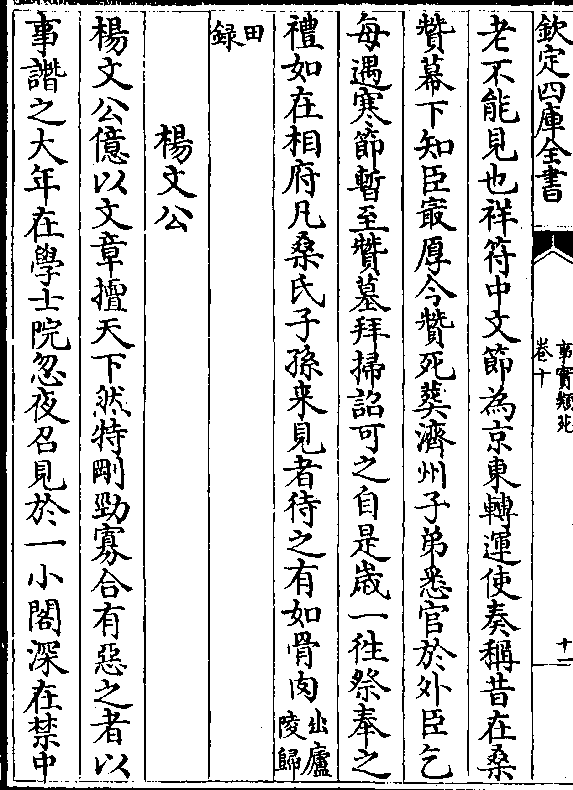 欽定四庫全書
事實類苑
卷十
十一
老不能見也祥符中文節為京東轉運使奏稱昔在桑
贊幕下知臣最厚今贊死葬濟州子弟悉官於外臣乞
每遇寒節暫至贊墓拜掃詔可之自是歲一徃祭奉之
禮如在相府凡桑氏子孫来見者待之有如骨肉出廬陵歸
田録
楊文公
楊文公億以文章擅天下然特剛勁寡合有惡之者以
事譖之大年在學士院忽夜召見於一小閤深在禁中